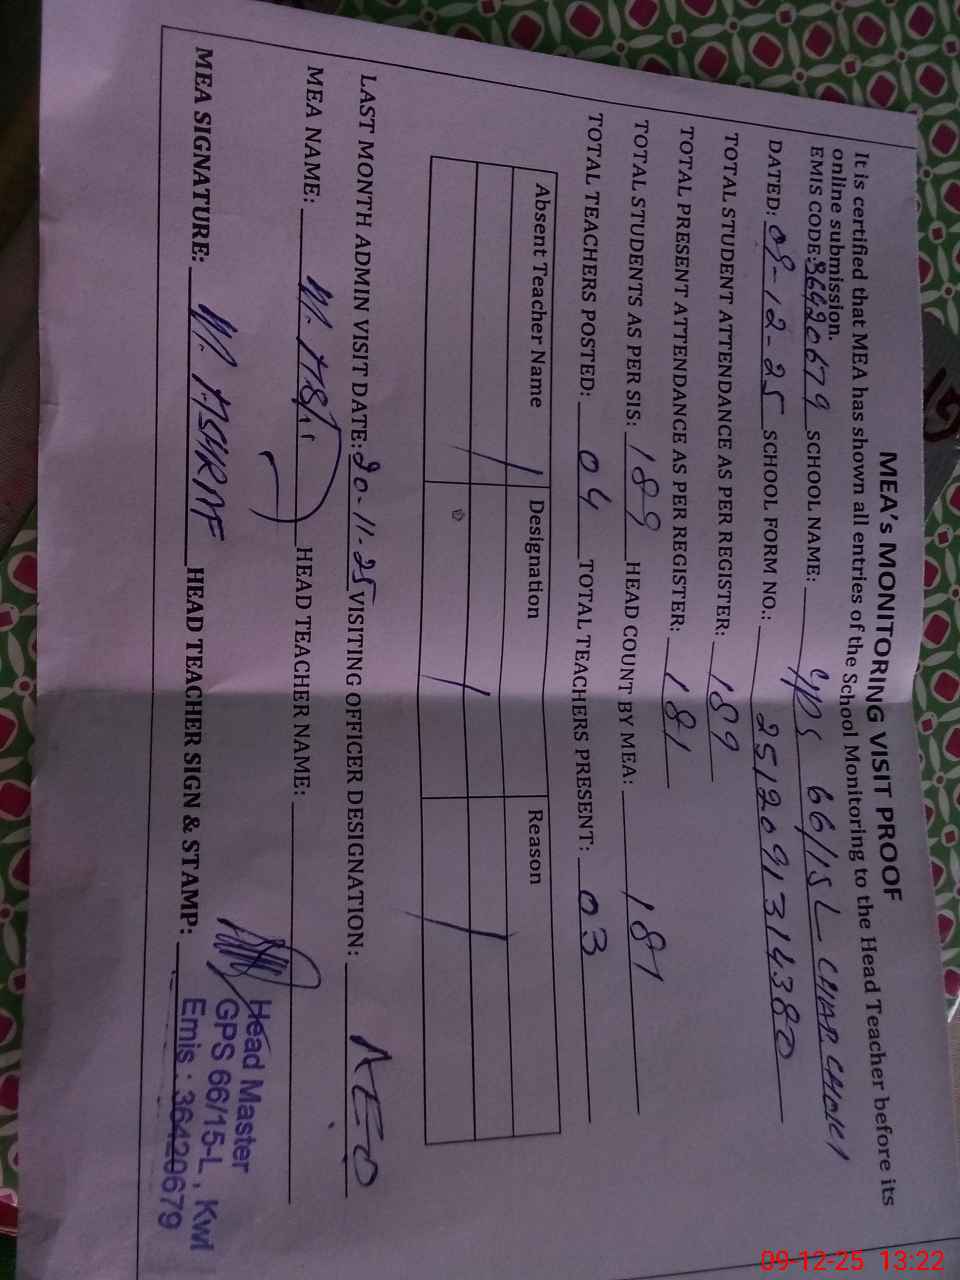 MEA's MONITORING VISIT PROOF
It is certified that MEA has shown all entries of the School Monitoring to the Head Teacher before its
online submission.
EMIS CODE: 36420679 SCHOOL NAME: GPS 66/15 L CHAR CHOKI
DATED: 09-12-25 SCHOOL FORM NO.: 2512091314380
TOTAL STUDENT ATTENDANCE AS PER REGISTER: 189
TOTAL PRESENT ATTENDANCE AS PER REGISTER: 181
TOTAL STUDENTS AS PER SIS: 189 HEAD COUNT BY MEA: 181
TOTAL TEACHERS POSTED: 04 TOTAL TEACHERS PRESENT: 03
Absent Teacher Name Designation Reason
LAST MONTH ADMIN VISIT DATE: 20-11-25 VISITING OFFICER DESIGNATION: AEO
MEA NAME: HEAD TEACHER NAME:
MEA SIGNATURE: M. ASHRAF HEAD TEACHER SIGN & STAMP:
Head Master
GPS 66/15-L, Kwl
Emis : 36420679
09-12-25 13:22